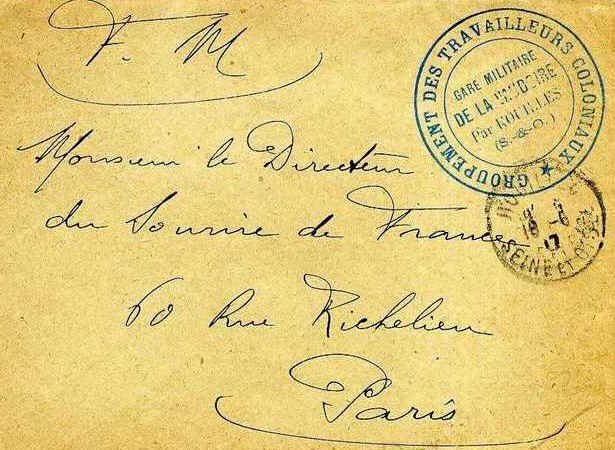 F. M
GROUPEMENT DES TRAVAILLEURS COLONIAUX
GARE MILITAIRE
DE LA
Par HOUILLES
(S.-&-O.)
Monsieur le Directeur
du Sourire de France
60 Rue Richelieu
Paris
SEINE ET OISE